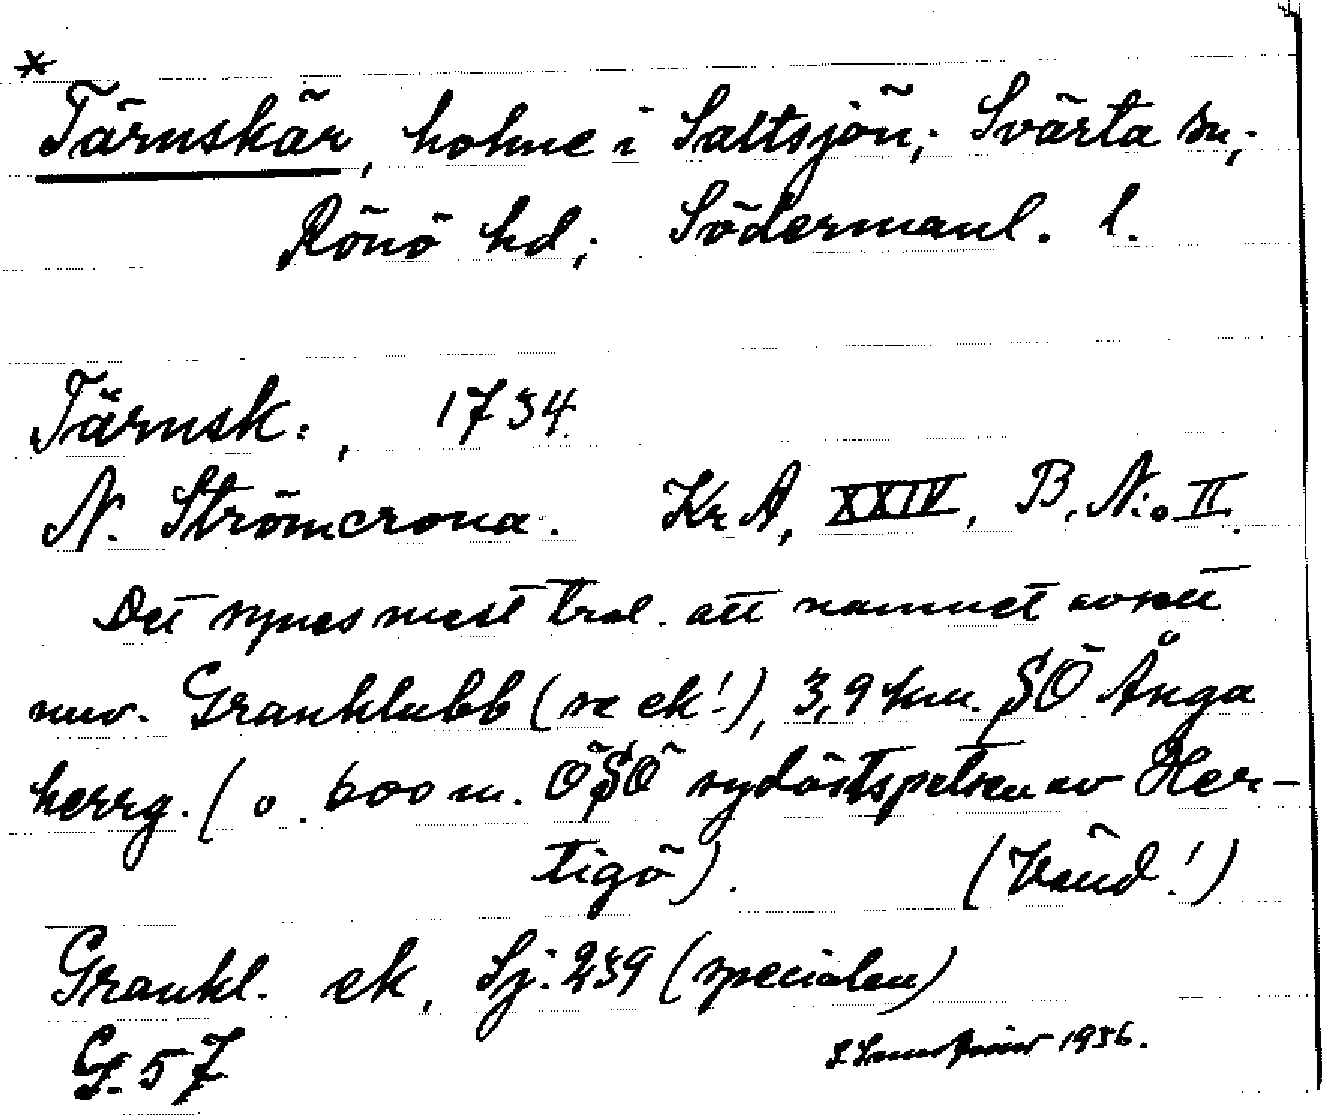 *
Tärnskär, holme i Saltsjön; Svärta sn;
Rönö hd; Södermanl. l.
Tärnsk:, 1734.
N. Strömcrona. Kr A, XXIV, B, N:o II.
Det synes mest trol. att namnet avsett
nuv. Granklubb (se ek!), 3,9 km. SÖ Ånga
herrg. (o. 600 m. ÖSÖ sydöstspetsen av Her-
tigö). (Vänd!)
Grankl. ek, Sj. 239 (specialen)
G. 57
1936.